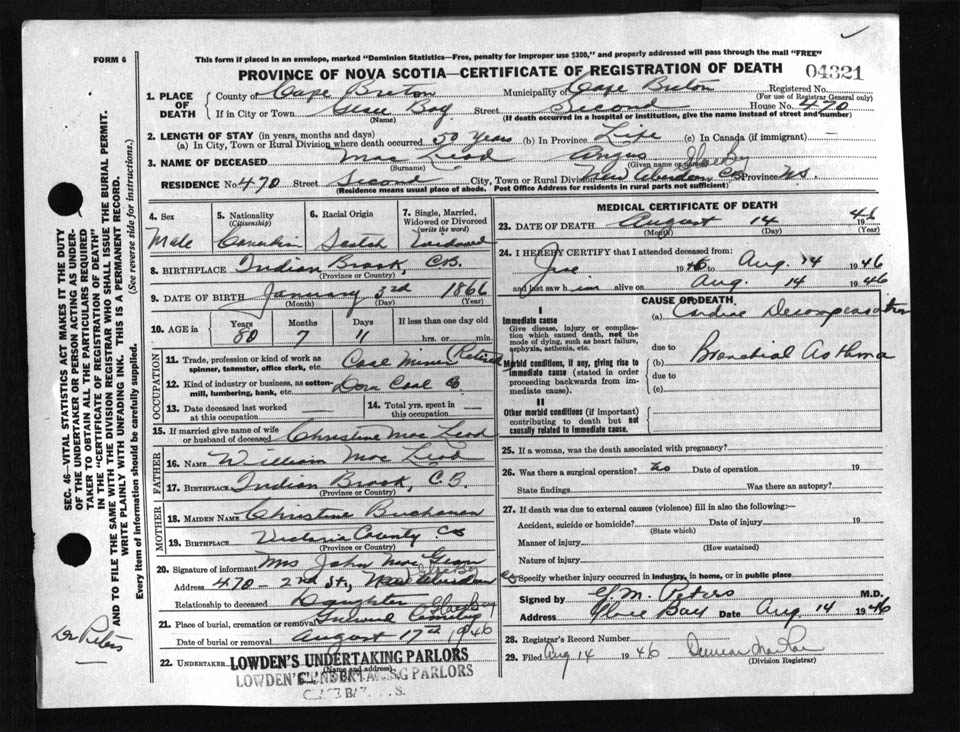 FORM 6
This form if placed in an envelope, marked "Dominion Statistics—Free, penalty for improper use $300," and properly addressed will pass through the mail "FREE"
PROVINCE OF NOVA SCOTIA—CERTIFICATE OF REGISTRATION OF DEATH
04321
1. PLACE OF DEATH
County of Cape Breton Municipality of Cape Breton Registered No.
(For use of Registrar General only)
If in City or Town Glace Bay Street Second House No. 470
(Name) (If death occurred in a hospital or institution, give the name instead of street and number)
2. LENGTH OF STAY (in years, months and days)
(a) In City, Town or Rural Division where death occurred 50 Years (b) In Province Life (c) In Canada (if immigrant)
3. NAME OF DECEASED Mac Leod Angus
(Surname) (Given name or names)
RESIDENCE No. 470 Street Second City, Town or Rural Division New Aberdeen Glace Bay CB Province N.S.
(Residence means usual place of abode. Post Office Address for residents in rural parts not sufficient)
4. Sex
Male
5. Nationality
(Citizenship)
Canadian
6. Racial Origin
Scotch
7. Single, Married, Widowed or Divorced
(write the word)
Widowed
8. BIRTHPLACE Indian Brook, C.B.
(Province or Country)
9. DATE OF BIRTH January 3rd 1866
(Month) (Day) (Year)
10. AGE in Years Months Days If less than one day old
80 7 11 hrs. or min.
OCCUPATION
11. Trade, profession or kind of work as spinner, teamster, office clerk, etc. Coal Miner (Retired)
12. Kind of industry or business, as cotton-mill, lumbering, bank, etc. Dom Coal Co
13. Date deceased last worked at this occupation
14. Total yrs. spent in this occupation
15. If married give name of wife or husband of deceased Christine Mac Leod
FATHER
16. NAME William Mac Leod
17. BIRTHPLACE Indian Brook, C.B.
(Province or Country)
MOTHER
18. MAIDEN NAME Christine Buchanan
19. BIRTHPLACE Victoria County CB
(Province or Country)
20. Signature of informant Mrs John Mac
Address 470 - 2nd St., New Aberdeen Glace Bay
Relationship to deceased Daughter
21. Place of burial, cremation or removal Cemetery Glace Bay
Date of burial or removal August 17th 1946
22. UNDERTAKER LOWDEN'S UNDERTAKING PARLORS
(Name and address)
LOWDEN'S UNDERTAKING PARLORS
GLACE BAY, N.S.
MEDICAL CERTIFICATE OF DEATH
23. DATE OF DEATH August 14 1946
(Month) (Day) (Year)
24. I HEREBY CERTIFY that I attended deceased from:
1946 to Aug. 14 1946
and last saw him alive on Aug. 14 1946
CAUSE OF DEATH
I
Immediate cause
Give disease, injury or complication which caused death, not the mode of dying, such as heart failure, asphyxia, asthenia, etc.
(a) Cardiac Decompensation
due to
Morbid conditions, if any, giving rise to immediate cause (stated in order proceeding backwards from immediate cause).
(b) Bronchial Asthma
due to
(c)
II
Other morbid conditions (if important) contributing to death but not causally related to immediate cause.
25. If a woman, was the death associated with pregnancy?
26. Was there a surgical operation? No Date of operation 19
State findings Was there an autopsy?
27. If death was due to external causes (violence) fill in also the following:—
Accident, suicide or homicide? Date of injury 19
(State which)
Manner of injury
(How sustained)
Nature of injury
Specify whether injury occurred in industry, in home, or in public place
Signed by G. M. Peters M.D.
Address Glace Bay Date Aug. 14 1946
28. Registrar's Record Number
29. Filed Aug 14 1946
(Division Registrar)
SEC. 46—VITAL STATISTICS ACT MAKES IT THE DUTY OF THE UNDERTAKER OR PERSON ACTING AS UNDERTAKER TO OBTAIN ALL THE PARTICULARS REQUIRED IN THE "CERTIFICATE OF REGISTRATION OF DEATH" AND TO FILE THE SAME WITH THE DIVISION REGISTRAR WHO SHALL ISSUE THE BURIAL PERMIT.
WRITE PLAINLY WITH UNFADING INK. THIS IS A PERMANENT RECORD.
Every item of information should be carefully supplied. (See reverse side for instructions.)
Dr Peters